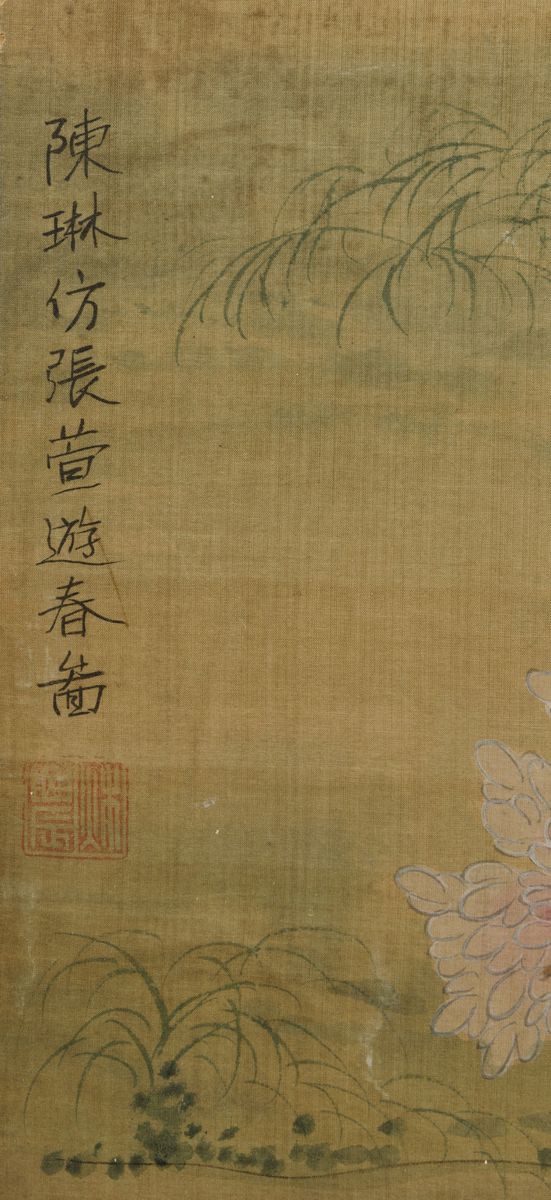 陳琳仿張萱遊春啚